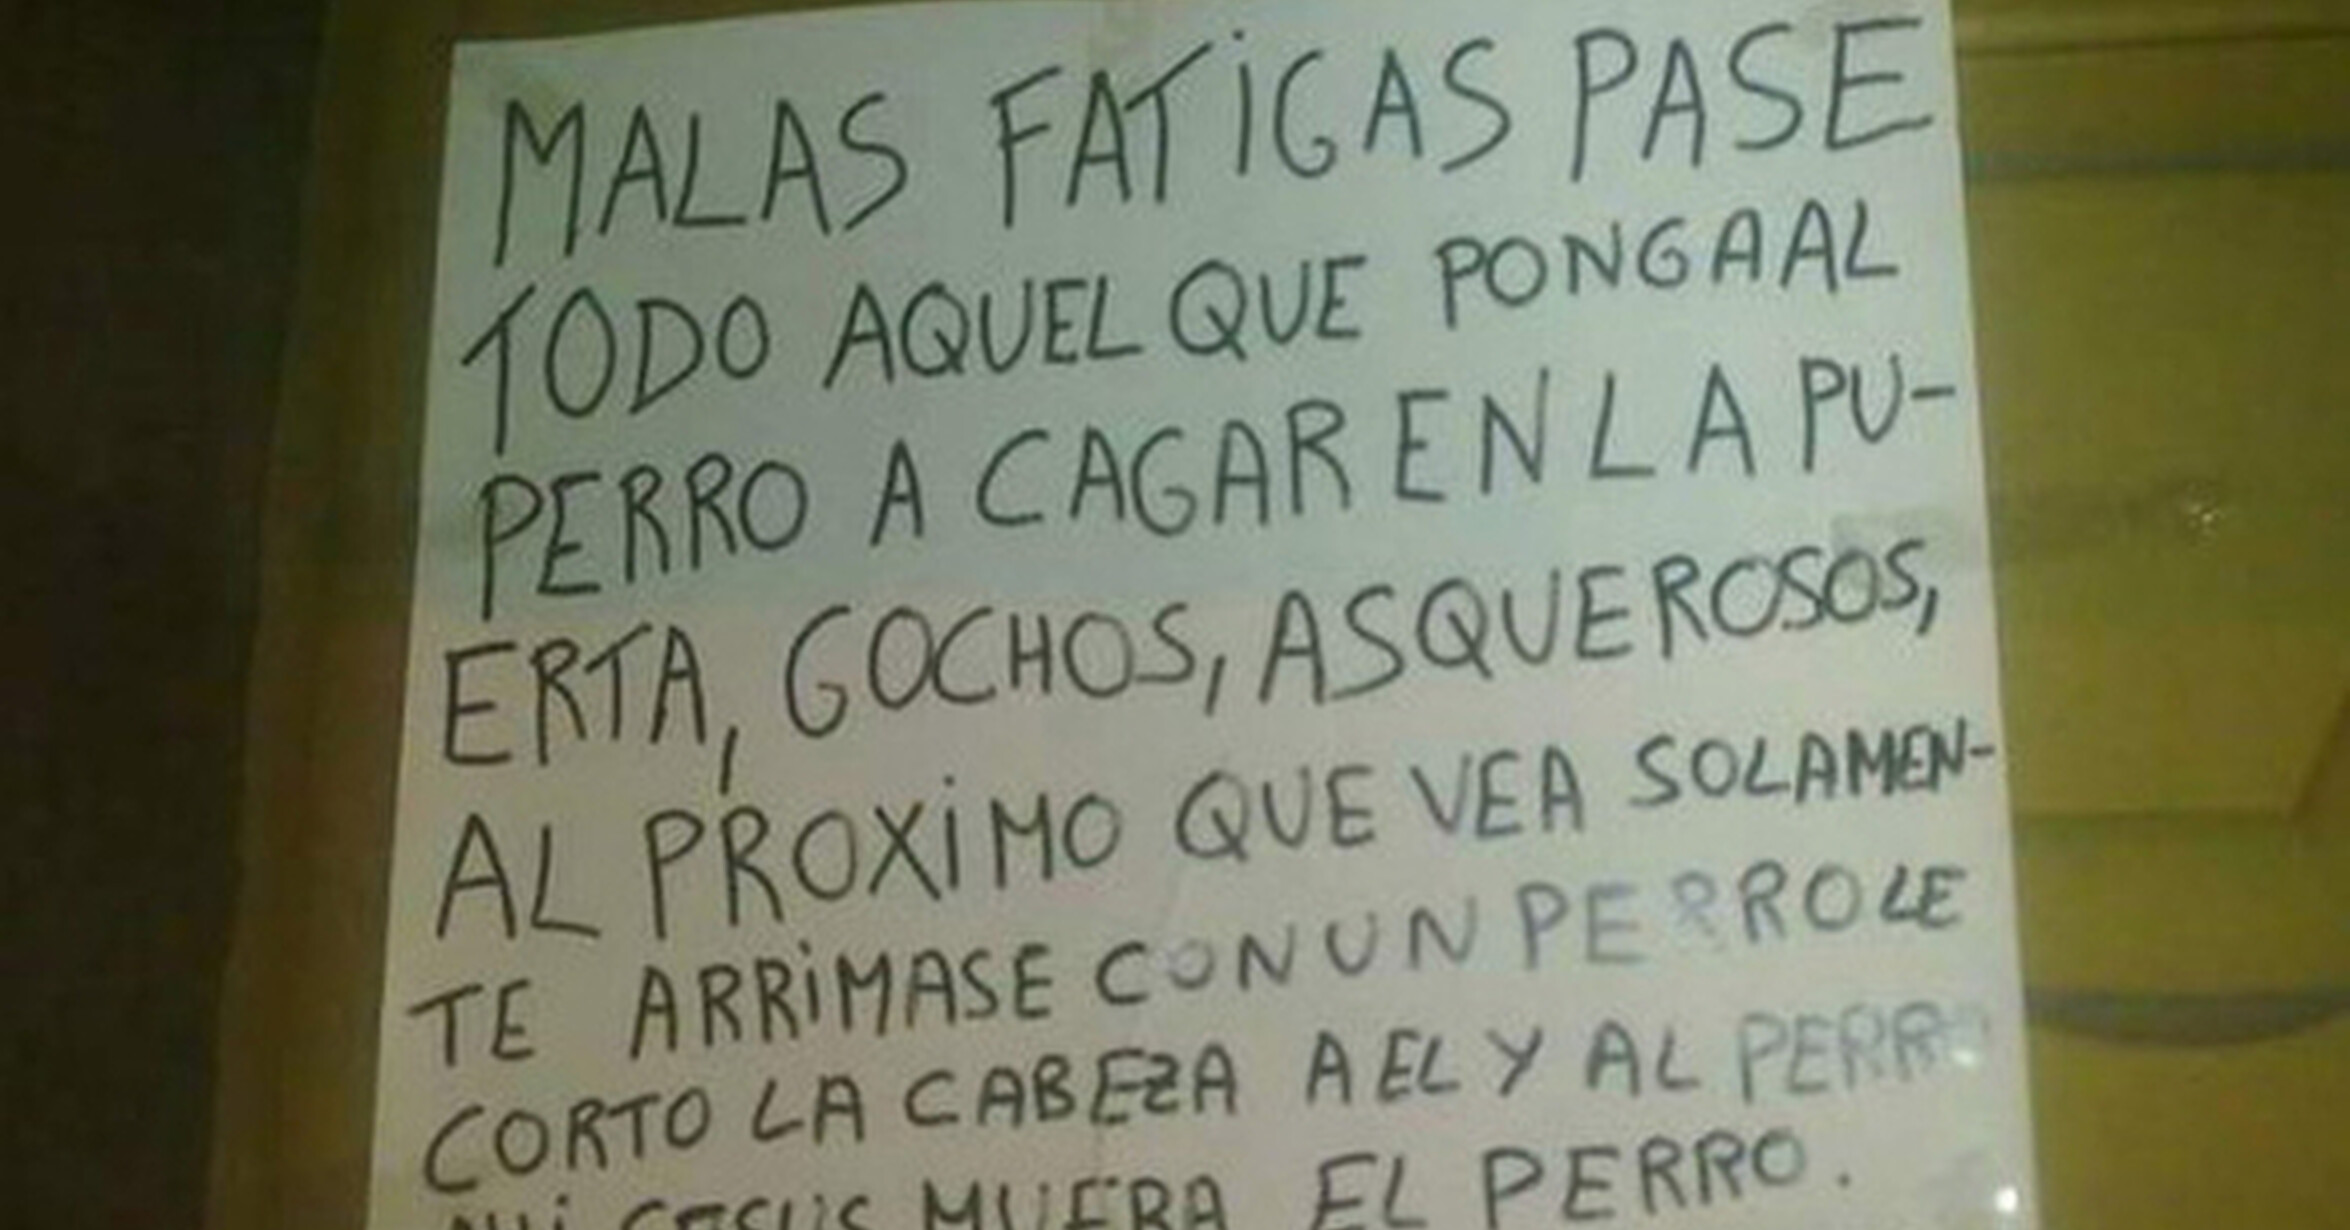 MALAS FATIGAS PASE
TODO AQUEL QUE PONGA AL
PERRO A CAGAR EN LA PU-
ERTA, GOCHOS, ASQUEROSOS,
AL PROXIMO QUE VEA SOLAMEN-
TE ARRIMASE CON UN PERRO LE
CORTO LA CABEZA A EL Y AL PERRO
MUERA EL PERRO.